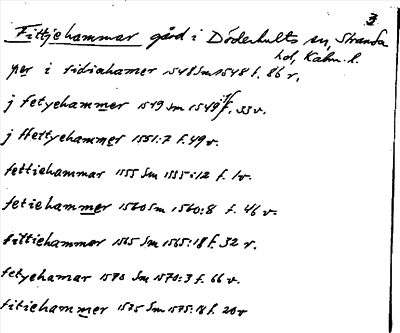 3
Fittjehammar gård i Döderhults sn, Stranda
hd, Kalm. l.
per i fidiæhamer 1548 Sm 1548 f. 86 r.
j fetyehammer 1549 Sm 1549: f. 33 v.
j ffettyehammer 1551:7 f. 49 v.
fettiehammar 1555 Sm 1555:12 f. 1 v.
fetiehammer 1560 Sm 1560:8 f. 46 v.
fittiehammer 1565 Sm 1565:18 f. 32 r.
fetyehamar 1570 Sm 1570:3 f. 66 v.
fitiehammer 1575 Sm 1575:18 f. 20 v